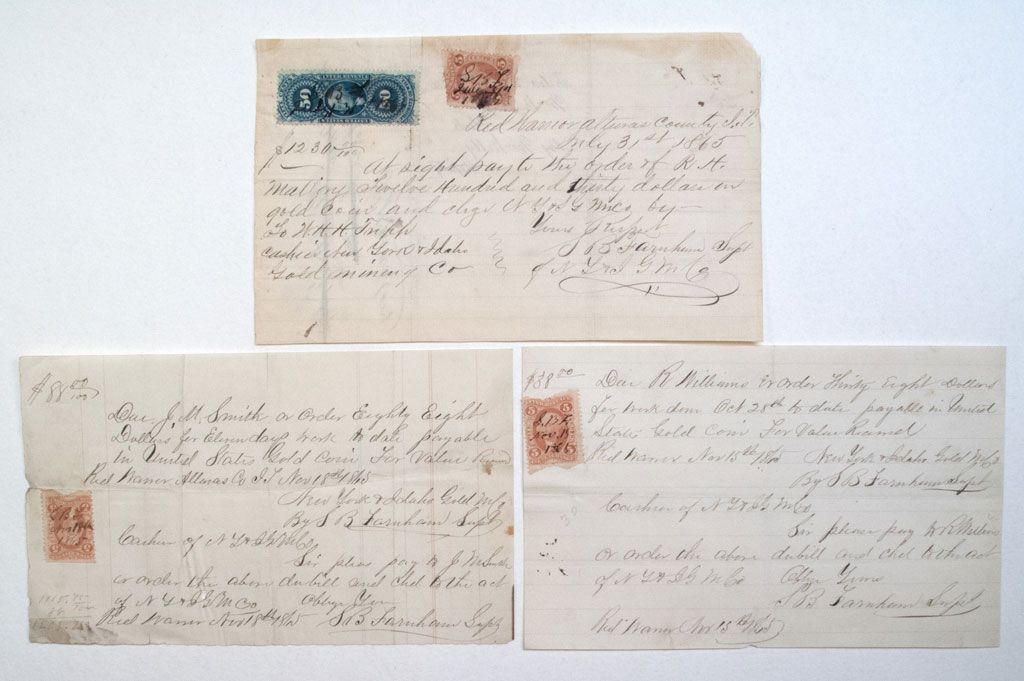 50 UNITED STATES 50
5 5
S B F
July 31st
1865
Red Warrior Alturas County I.T.
July 31st 1865
$1230 00/100
At sight pay to the order of R. H.
Mallory Twelve Hundred and thirty dollars in
gold Coin and chge N Y & I G M Co by
To W. H. H. Tripp Yours &c
Cashier New York & Idaho S B Farnham Supt
Gold mining Co of N Y & I G M Co
$88 00/100
Due J. M. Smith or Order Eighty Eight
Dollars for Eleven days work to date payable
in United States Gold Coin For Value Recvd
Red Warrior Alturas Co I.T. Nov 18th 1865
New York & Idaho Gold M Co
By S B Farnham Supt
Cashier of N Y & I G M Co
Sir pleas pay to J M Smith
or order the above duebill and chd to the act
of N Y & I G M Co Oblige Yours
Red Warrior Nov 18th 1865 S B Farnham Supt
$38 00
Due R Williams or order Thirty Eight Dollars
for work done Oct 28th to date payable in United
States Gold Coin For Value Received
5 5
S.B.F.
Nov. 15
1865
Red Warrior Nov 15th 1865 New York & Idaho Gold M Co
By S B Farnham Supt
Cashier of N Y & I G M Co
Sir please pay to R Williams
or order the above duebill and chd to the act
of N Y & I G M Co Oblige Yours
S B Farnham Supt
Red Warrior Nov 15th 1865